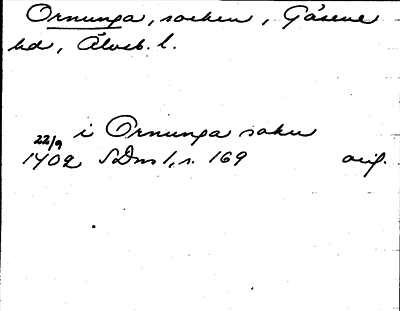 Ornunga, socken, Gäsene
hd, Älvsb. l.
i Ornunga sokn
22/9
1402 SDns 1, s. 169 orig.